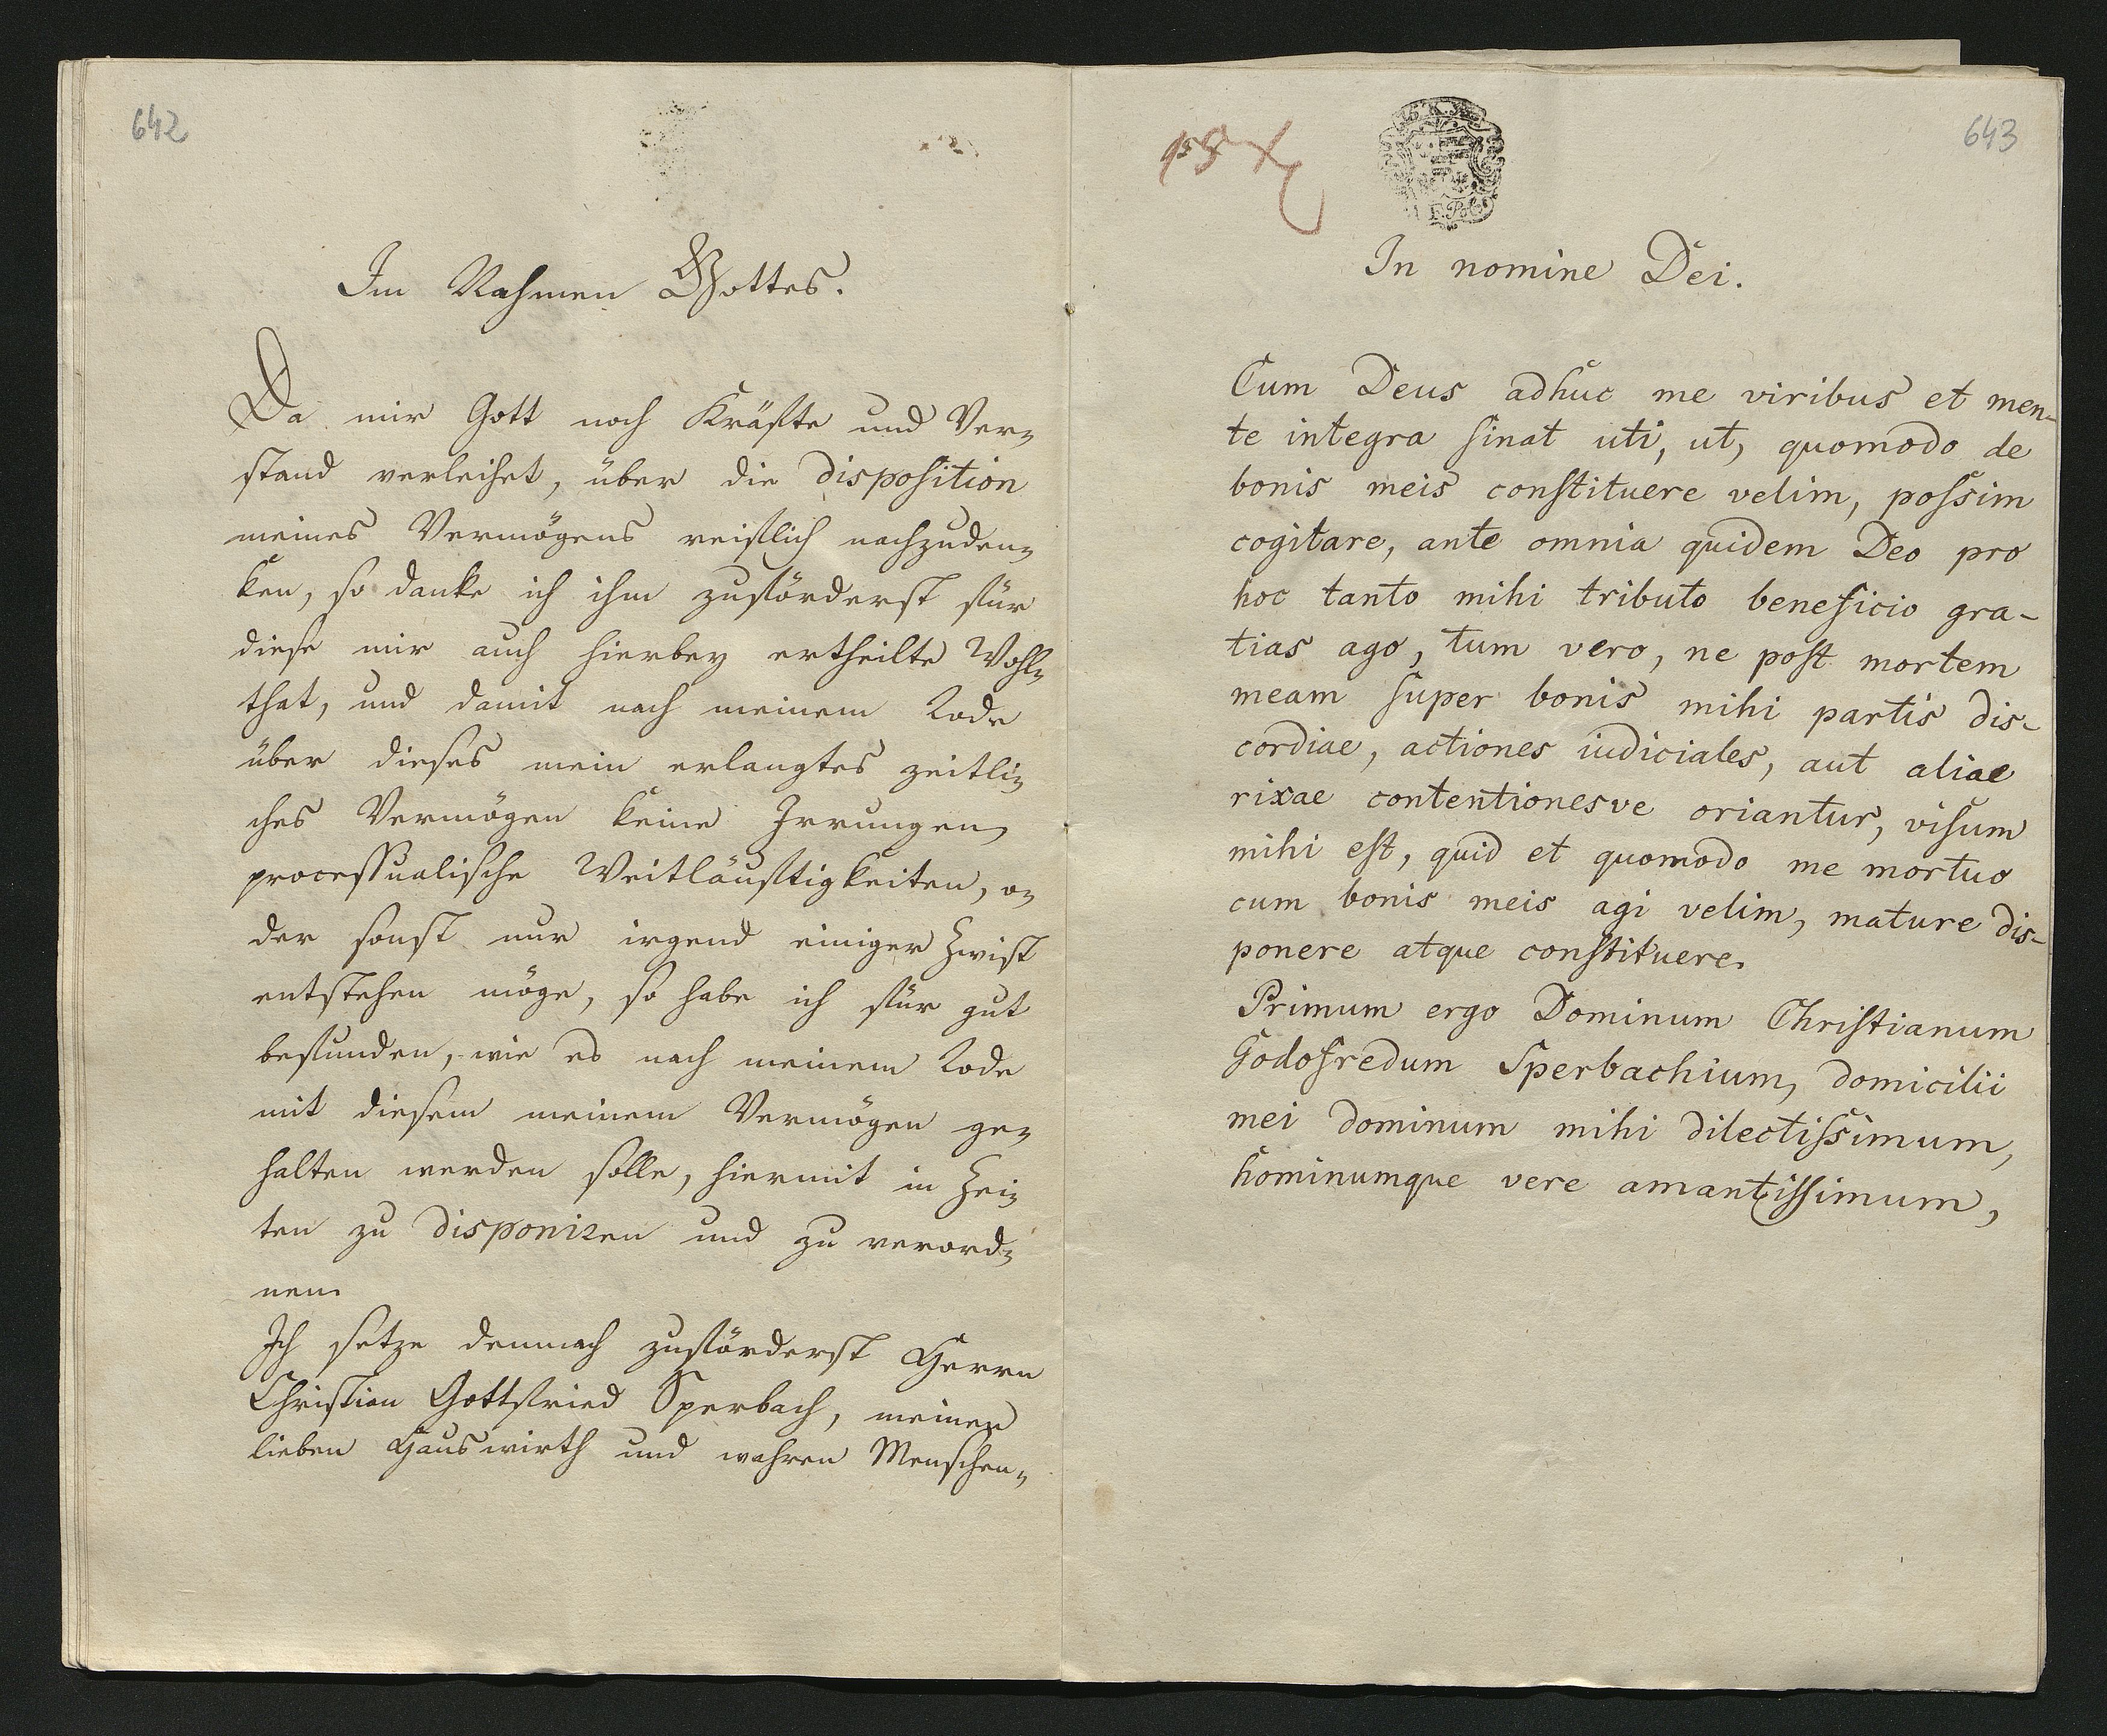 642
Im Nahmen Gottes.
Da mir Gott noch Kräfte und Ver-
stand verleihet, über die disposition
meines Vermögens reiflich nachzuden-
ken, so danke ich ihm zuförderst für
diese mir auch hierbey ertheilte Wohl-
that, und damit nach meinem Tode
über dieses mein erlangtes zeitli-
ches Vermögen keine Irrungen,
processualische Weitläuftigkeiten, o-
der sonst nur irgend einiger Zwist
entstehen möge, so habe ich für gut
befunden, wie es nach meinem Tode
mit diesem meinem Vermögen ge-
halten werden solle, hiermit in Zei-
ten zu disponiren und zu verord-
nen.
Ich setze demnach zuförderst Herrn
Christian Gottfried Sperbach, meinen
lieben Hauswirth und wahren Menschen-
643
In nomine Dei.
Cum Deus adhuc me viribus et men-
te integra ſinat uti, ut, quomodo de
bonis meis conſtituere velim, poſsim
cogitare, ante omnia quidem Deo pro
hoc tanto mihi tributo beneficio gra-
tias ago, tum vero, ne poſt mortem
meam ſuper bonis mihi partis dis-
cordiae, actiones iudiciales, aut aliae
rixae contentionesve oriantur, viſum
mihi eſt, quid et quomodo me mortuo
cum bonis meis agi velim, mature dis-
ponere atque conſtituere.
Primum ergo Dominum Chriſtianum
Godofredum Sperbachium, domicilii
mei dominum mihi dilectiſsimum,
hominumque vere amantiſſimum,